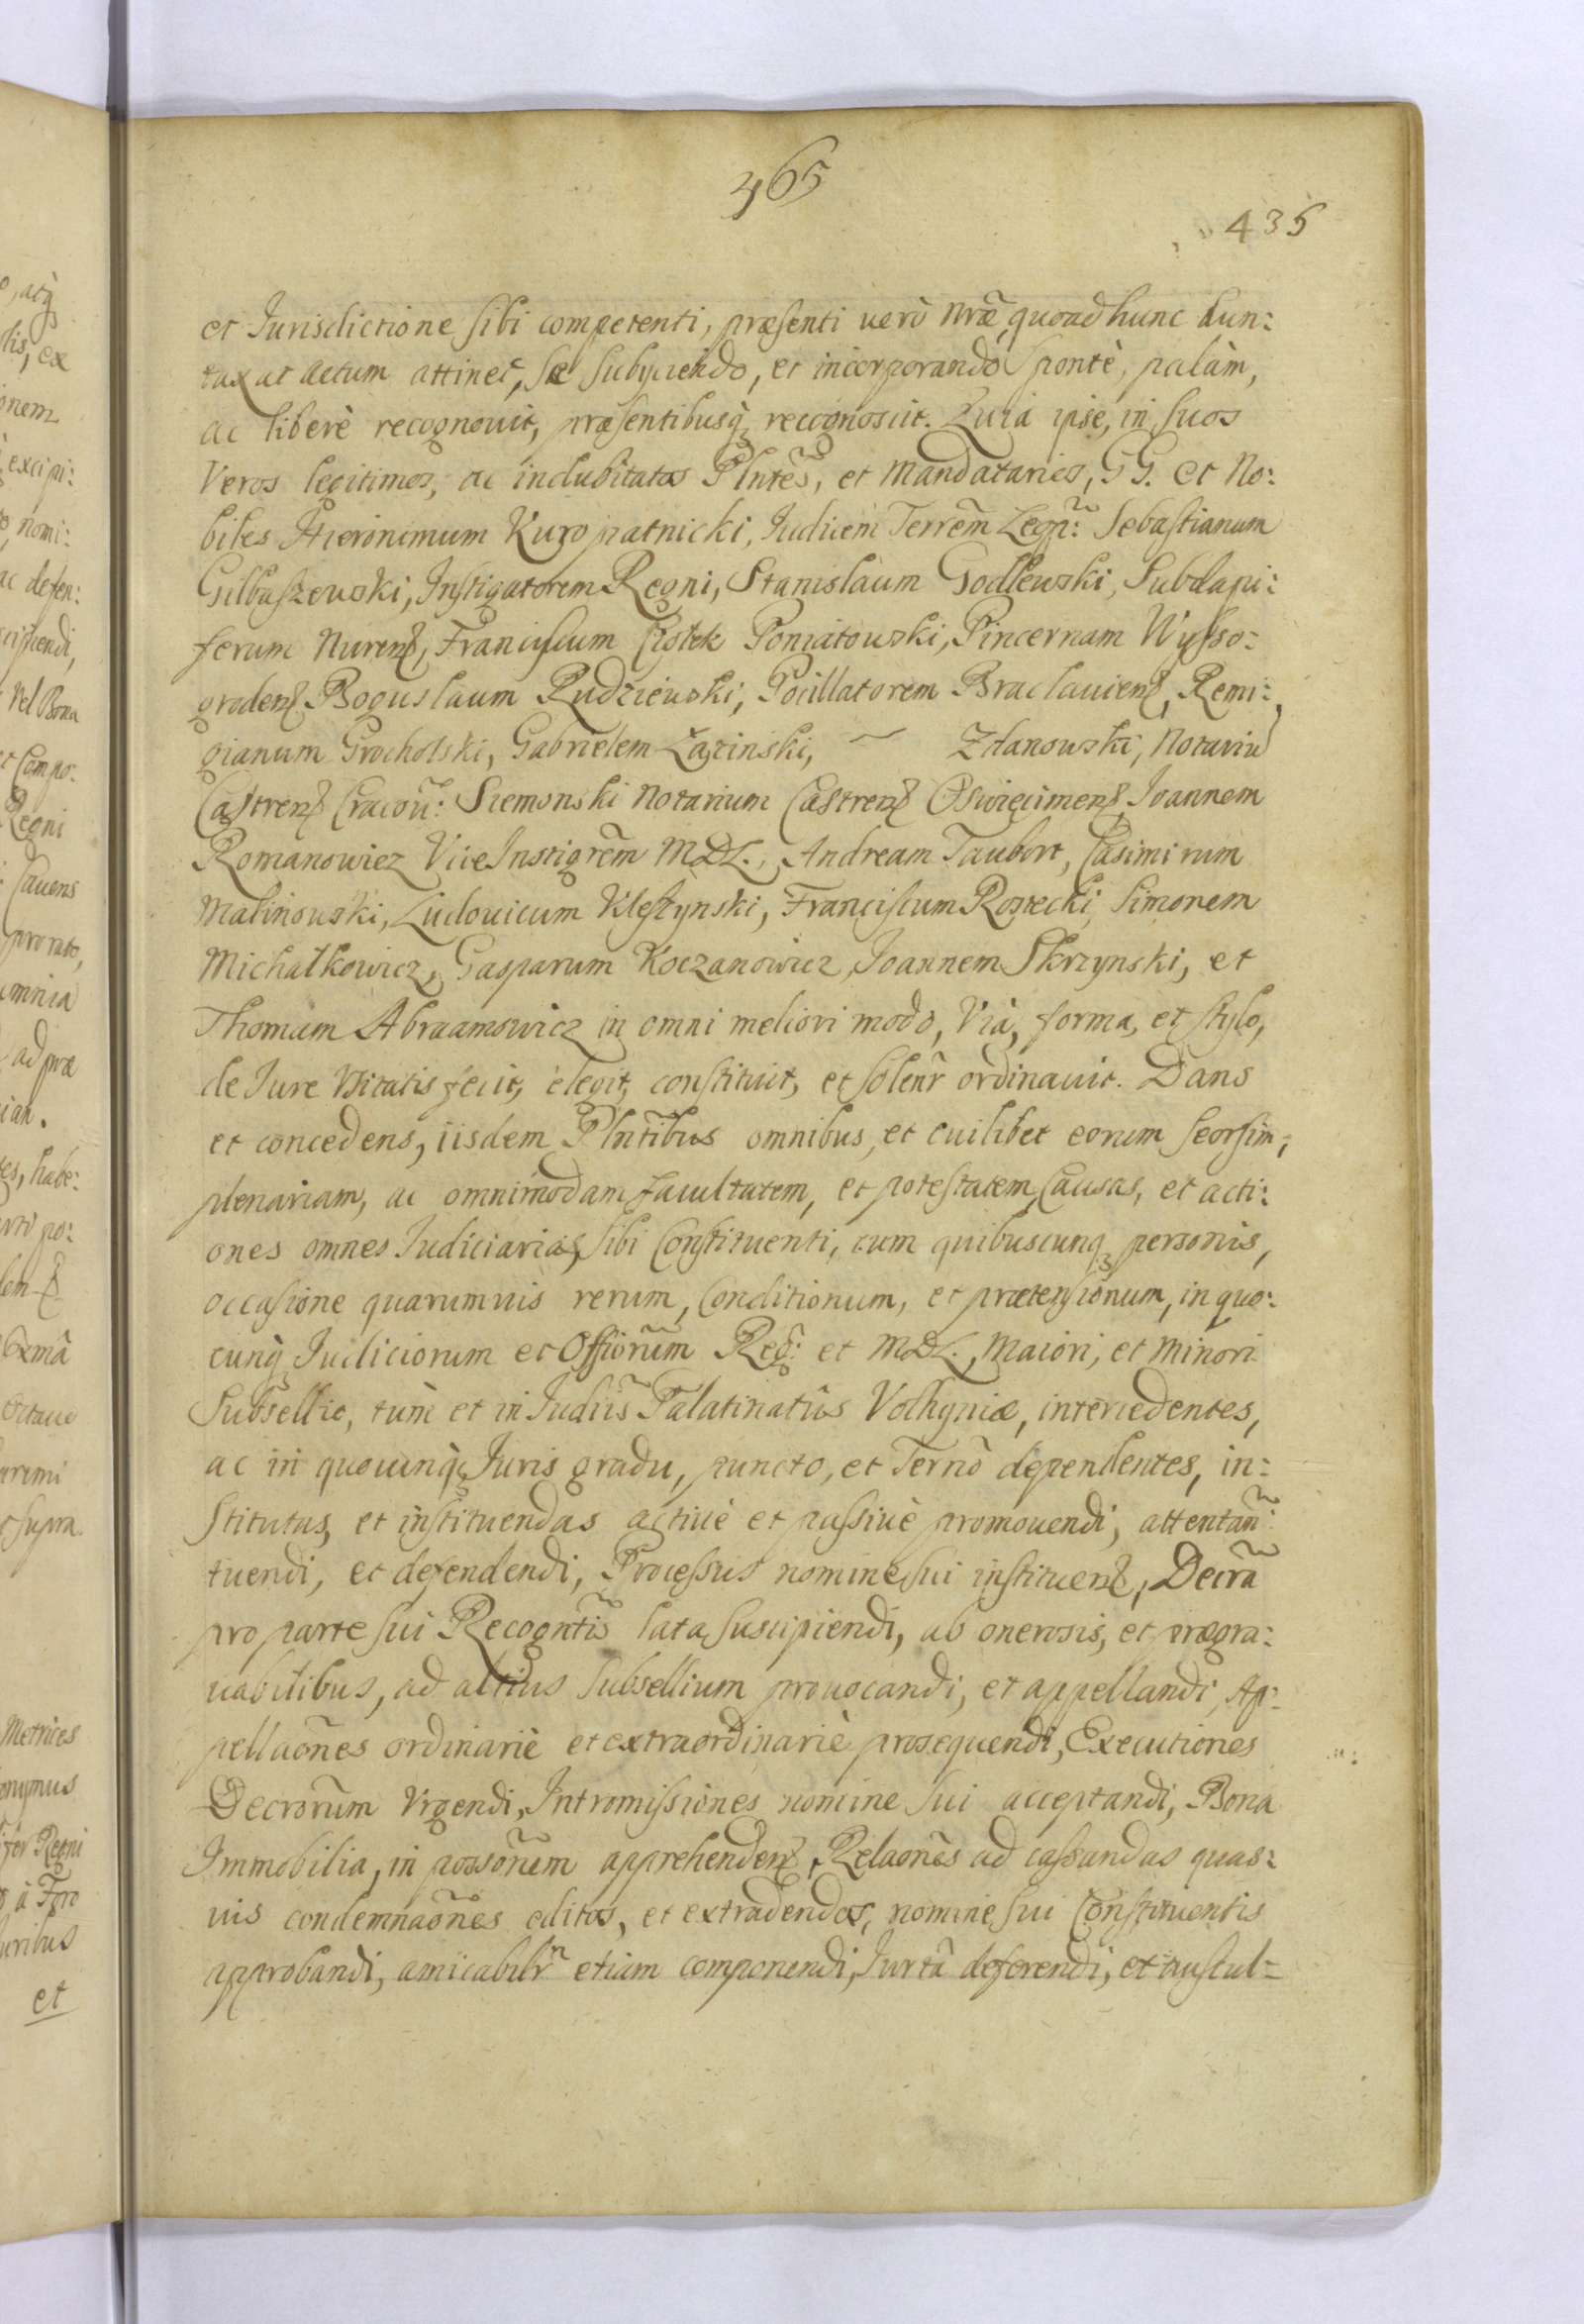 465
435
et Jurisdictione sibi competenti, præsenti verò nr̃æ, quoad hunc dun:
taxat actum attinet, se subijciendo, et incorporando Spontè, palàm,
ac liberè recognouit, præsentibusq̃ recognoscit. Quia ipse, in suos
Veros legitimos, ac indubitatos Plñtes, et Mandatarios, GG. et No:
biles Hieronimum Kuropatnicki, Judicem Terrem̃ Sebastianum
Gilbaszewski, Instigatorem Regni, Stanislaum Godlewski, Subdapi:
ferum Nurenß, Franciscum Ciołek Poniatowski, Pincernam Wysso:
grodenß Boguslaum Rudziewski, Pocillatorem Braclauienß, Remi:
gianum Grocholski, Gabrielem Łazinski, ~ Zdanowski, Notariũ
Castrenß Cracou: Siemonski Notarium Castrenß Oswiecimenß, Joannem
Romanowicz ViceInstigrẽm MDL., Andream Taubert, Casimirum
Malinowski, Ludouicum Klestynski, Franciscum Rostecki, Simonem
Michałkowicz, Gasparum Koczanowicz, Joannem Skrzynski, et
Thomam Abraamowicz in omni meliori modo, Vià, forma, et stylo,
de Jure Vsitatis fecit, elegit, constituit, et solenr̃ ordinauit. Dans
et concedens, iisdem Plñtibus omnibus, et cuilibet eorum seorsim,
plenariam, ac omnimodam facultatem, et potestatem, Causas, et acti:
ones omnes Judiciarias, sibi Constituenti, cum quibuscunq̃ personis,
occasione quarumuis rerum, Conditionum, et prætensionum, in quo:
cunq̃ Judiciorum et Officiorum̃ Reg̃: et MDL., Maiori, et Minori
Subsellio, tùm et in Judiis̃ Palatinatûs Volhyniæ, intercedentes,
ac in quocunq̃ Juris gradu, puncto, et Ternõ dependentes, in:
stitutas, et instituendas actiuè et passiuè promouendi, attentañ:
tuendi, et defendendi, Processus nomine sui instituenß, Decrã
pro parte sui Recogñtis lata suscipiendi, ab onerosis, et prægra:
uabilibus, ad altius Subsellium prouocandi, et appellandi, Ap:
pellaõnes ordinariè et extraordinariè prosequendi, Executiones
Decrorum̃ Vrgendi, Intromissiones nomine sui acceptandi, Bona
Immobilia, in possõnem apprehendenß, Relaõnes ad cassandas quas:
uis condemnaõnes editas, et extradendas, nomine sui Constituentis
approbandi, amicabilr̃ etiam componendi, Jurtã deferendi, et auscul=